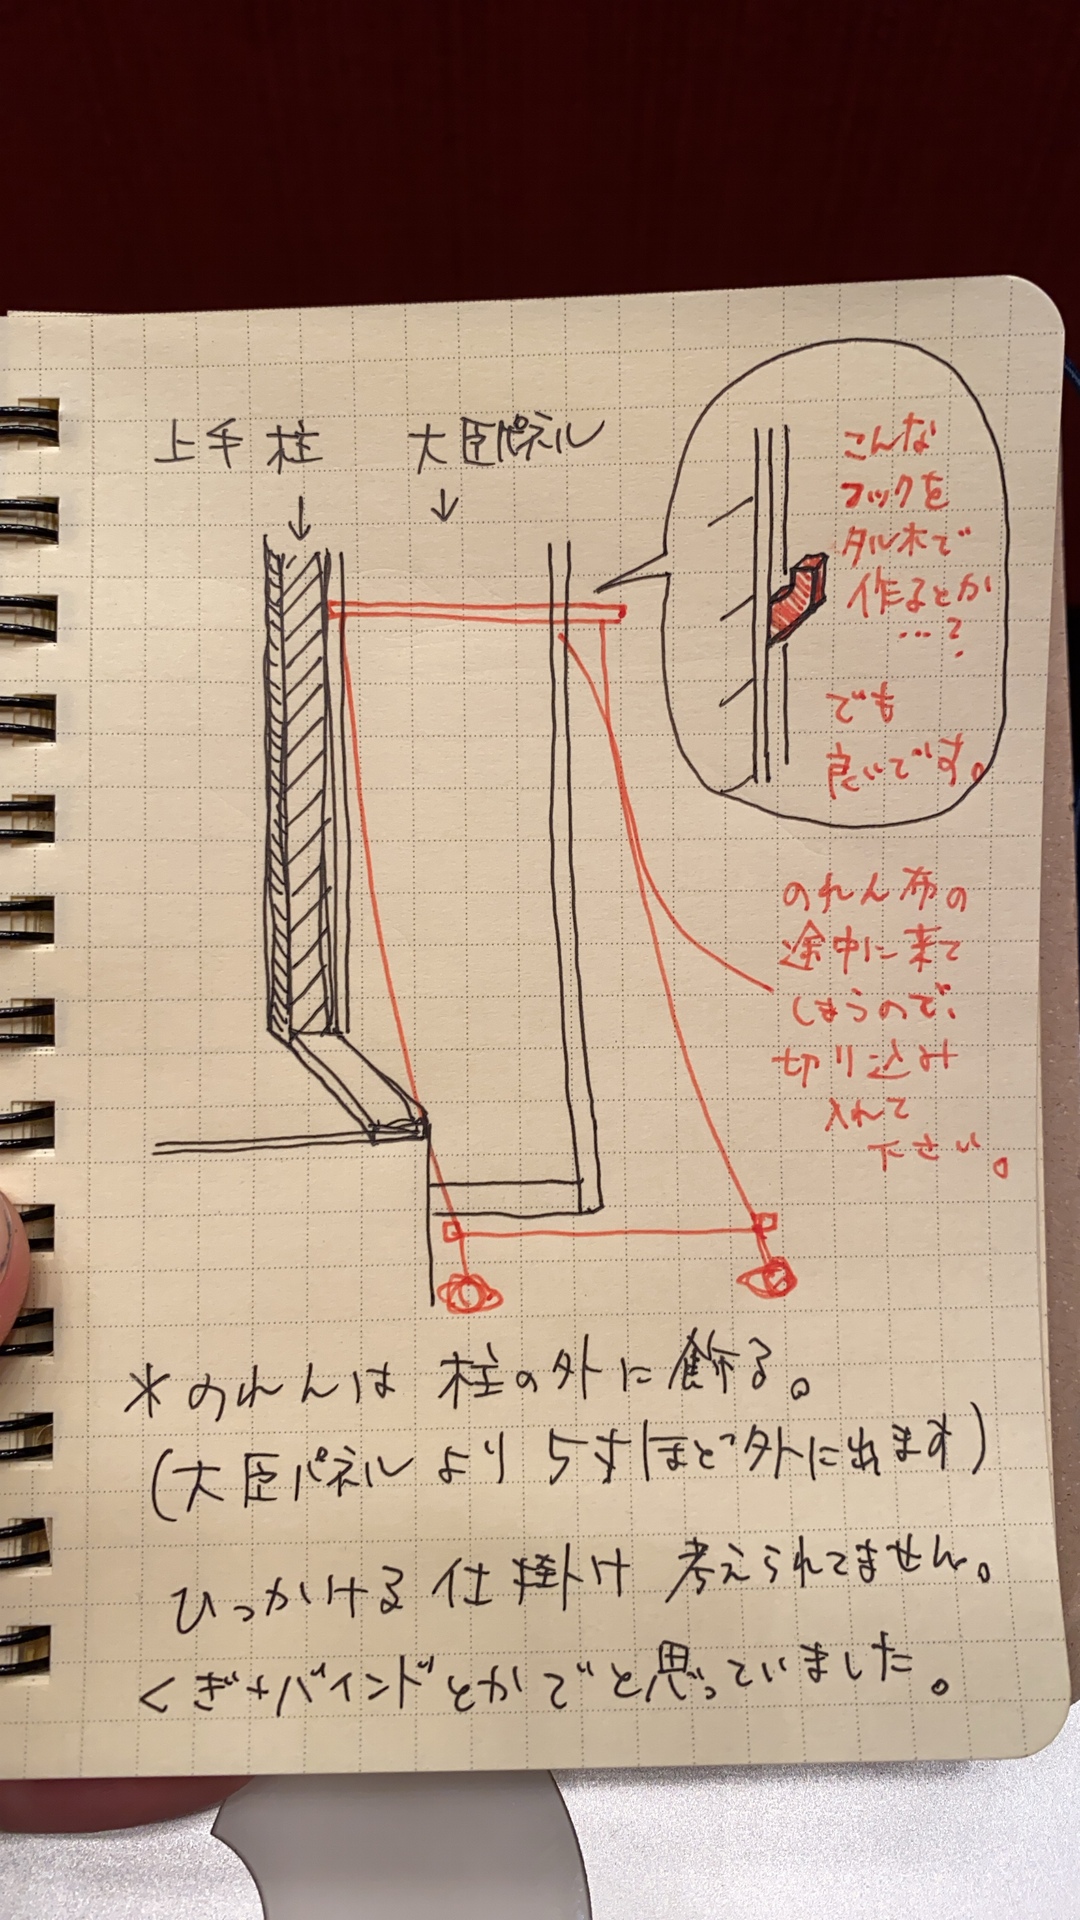 上手 柱
大臣パネル
こんな
フックを
タル木で
作るとか
…?
でも
良いです。
のれん布の
途中に来て
しまうので、
切り込み
入れて
下さい。
*のれんは 柱の外に飾る。
(大臣パネルより 5寸ほど外に出ます)
ひっかける仕掛け 考えられてません。
くぎ+バインドとかでと思っていました。